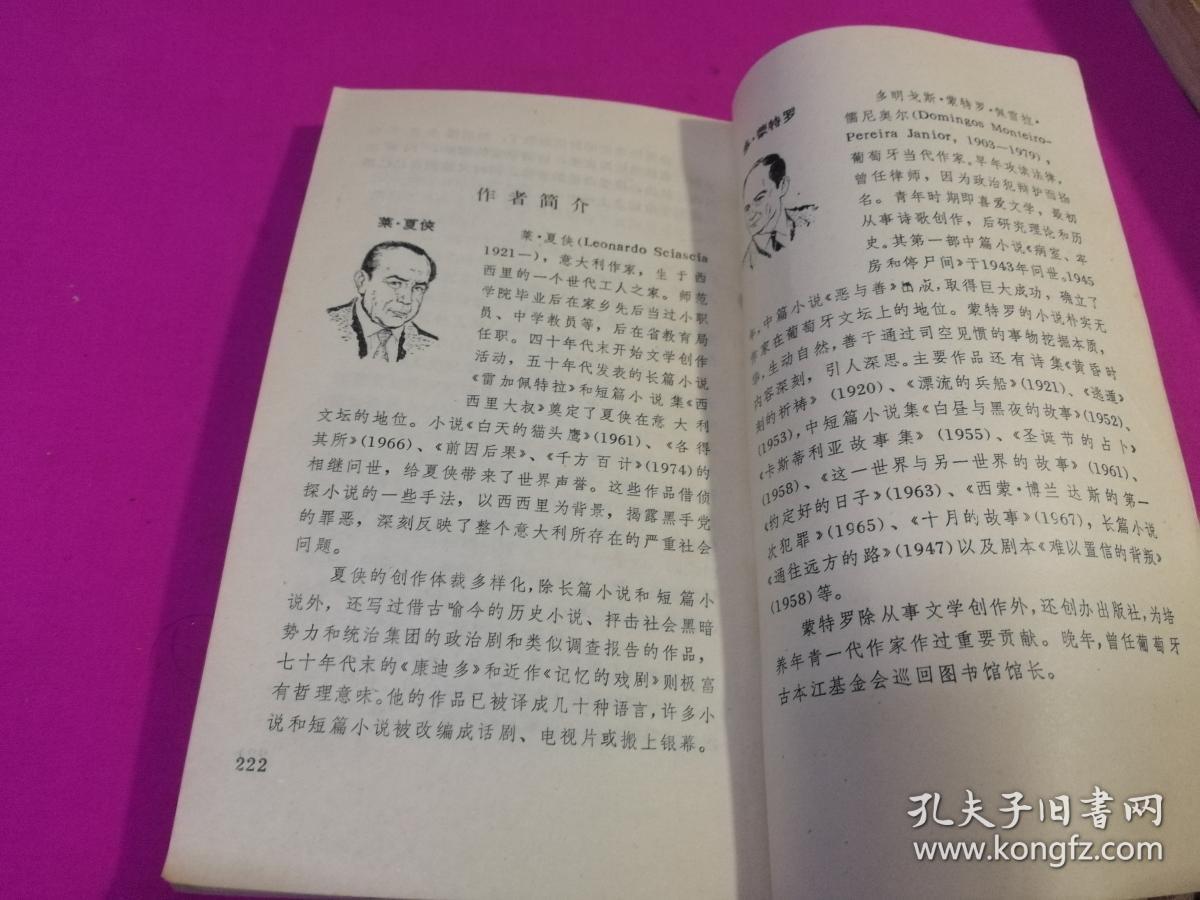 作者简介
莱·夏侠
莱·夏侠(Leonardo Sciascia
1921—)，意大利作家，生于西
西里的一个世代工人之家。师范
学院毕业后在家乡先后当过小职
员、中学教员等，后在省教育局
任职。四十年代末开始文学创作
活动，五十年代发表的长篇小说
《雷加佩特拉》和短篇小说集《西
西里大叔》奠定了夏侠在意大利
文坛的地位。小说《白天的猫头鹰》(1961)、《各得
其所》(1966)、《前因后果》、《千方百计》(1974)的
相继问世，给夏侠带来了世界声誉。这些作品借侦
探小说的一些手法，以西西里为背景，揭露黑手党
的罪恶，深刻反映了整个意大利所存在的严重社会
问题。
夏侠的创作体裁多样化，除长篇小说和短篇小
说外，还写过借古喻今的历史小说、抨击社会黑暗
势力和统治集团的政治剧和类似调查报告的作品，
七十年代末的《康迪多》和近作《记忆的戏剧》则极富
有哲理意味。他的作品已被译成几十种语言，许多小
说和短篇小说被改编成话剧、电视片或搬上银幕。
222
·蒙特罗
多明戈斯·蒙特罗·佩雷拉·
儒尼奥尔(Domingos Monteiro-
Pereira Janior, 1903—1979)，
葡萄牙当代作家。早年攻读法律，
曾任律师，因为政治犯辩护而扬
名。青年时期即喜爱文学，最初
从事诗歌创作，后研究理论和历
史。其第一部中篇小说《病室、牢
房和停尸间》于1943年问世。1945
年，中篇小说《恶与善》出版，取得巨大成功，确立了
作家在葡萄牙文坛上的地位。蒙特罗的小说朴实无
华，生动自然，善于通过司空见惯的事物挖掘本质，
内容深刻，引人深思。主要作品还有诗集《黄昏时
刻的祈祷》(1920)、《漂流的兵船》(1921)、《逃遁》
(1953)，中短篇小说集《白昼与黑夜的故事》(1952)、
《卡斯蒂利亚故事集》(1955)、《圣诞节的占卜》
(1958)、《这一世界与另一世界的故事》(1961)、
《约定好的日子》(1963)、《西蒙·博兰达斯的第一
次犯罪》(1965)、《十月的故事》(1967)，长篇小说
《通往远方的路》(1947)以及剧本《难以置信的背叛》
(1958)等。
蒙特罗除从事文学创作外，还创办出版社，为培
养年青一代作家作过重要贡献。晚年，曾任葡萄牙
古本江基金会巡回图书馆馆长。
孔夫子旧书网
www.kongfz.com